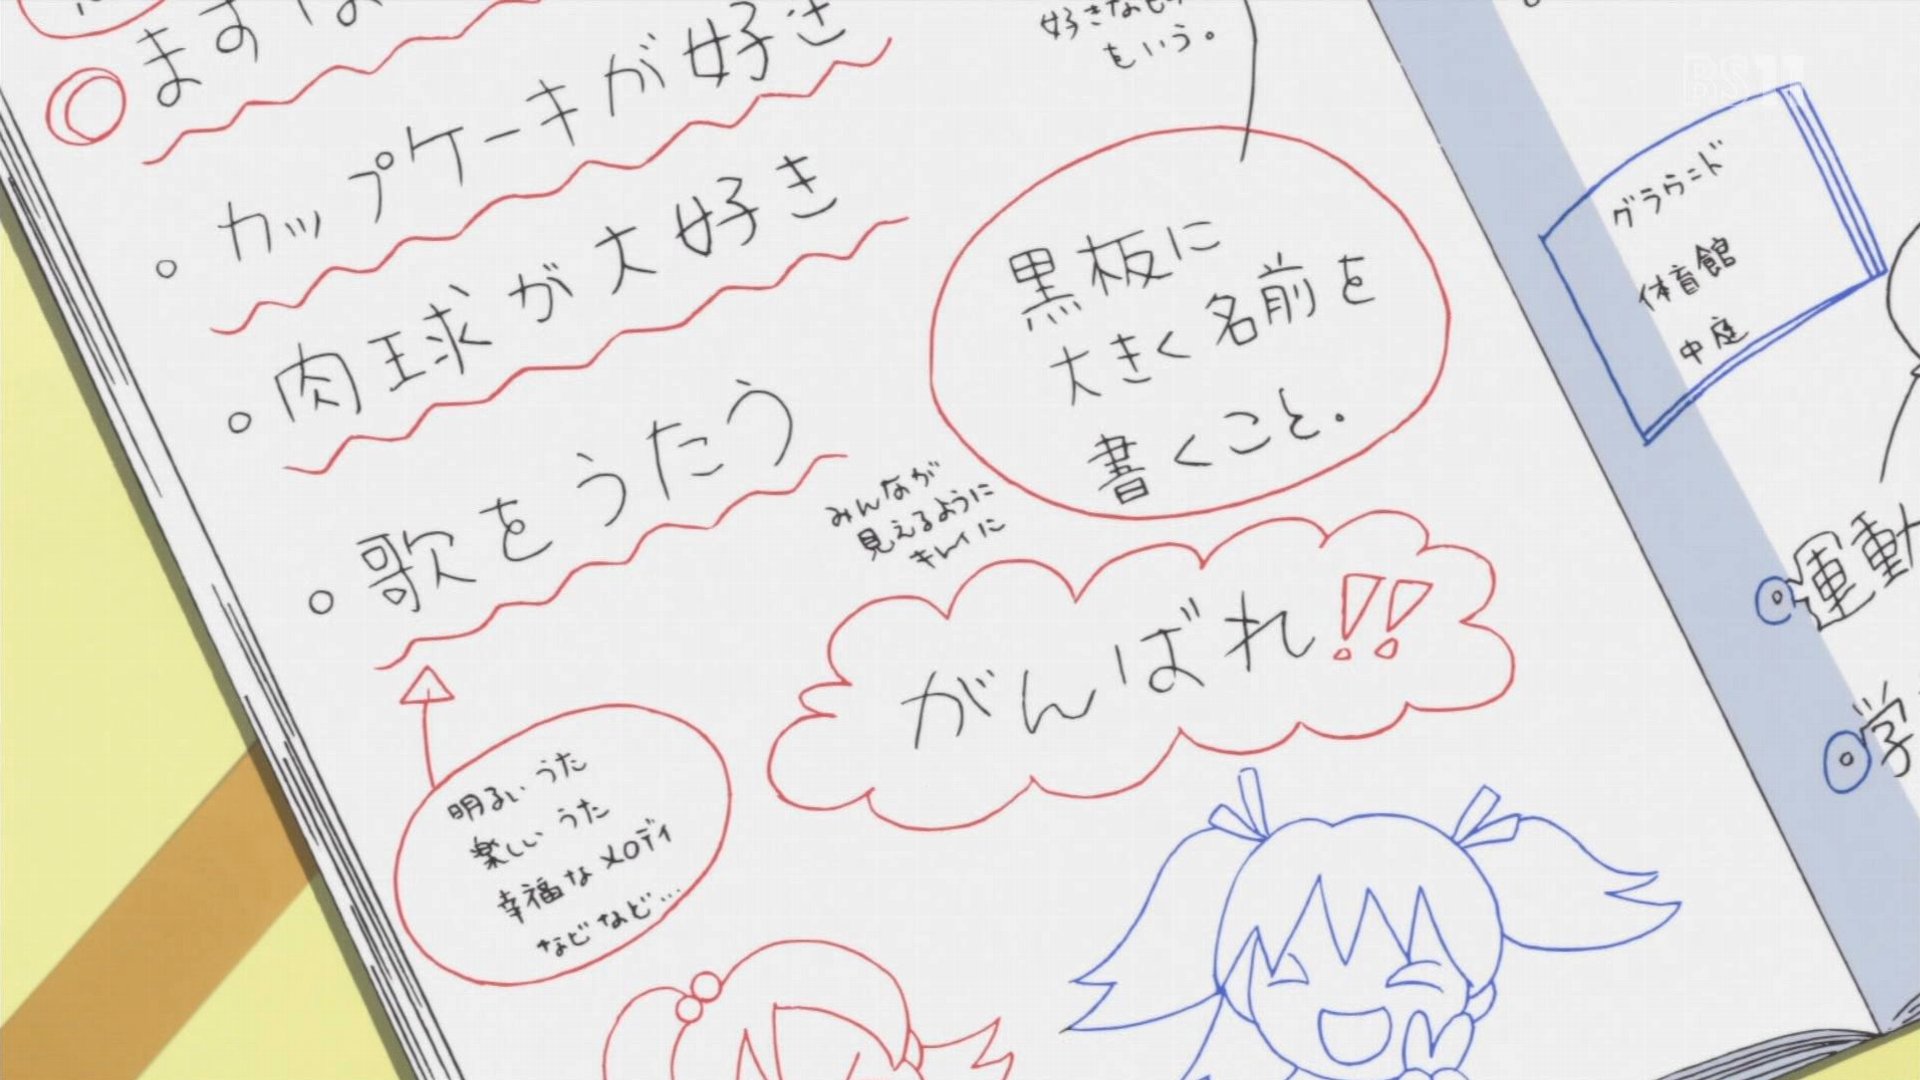 まずは
カップケーキが好き
肉球が大好き
歌をうたう
明るいうた
楽しいうた
幸福なメロディ
などなど…
をいう。
黒板に
大きく名前を
書くこと。
みんなが
見えるように
キレイに
がんばれ!!
BS11
グラウンド
体育館
中庭
運動
学